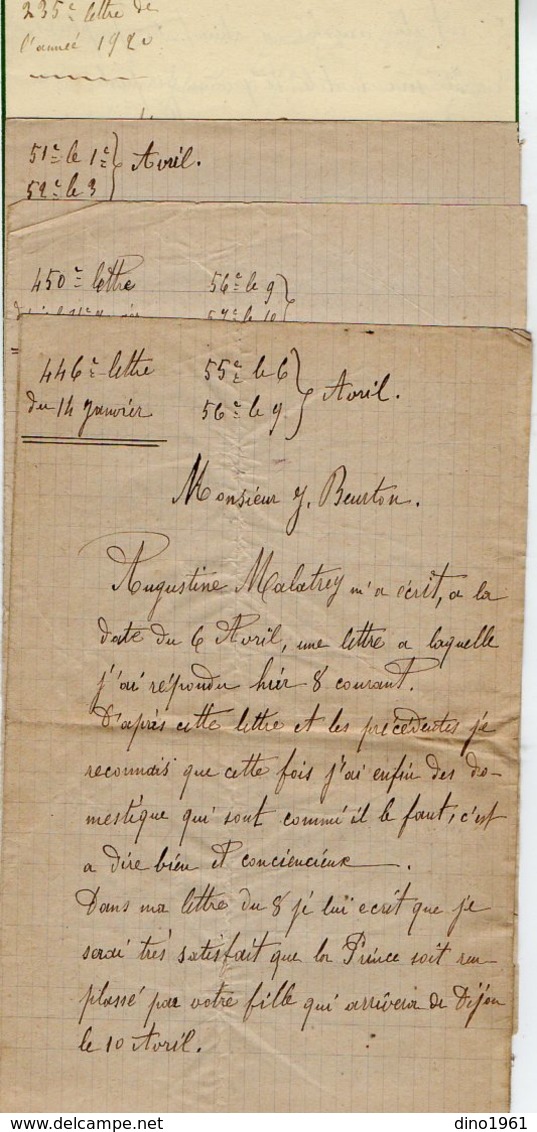 235e lettre de
l'année 1920
51e le 1e } Avril.
52e le 3
450e lettre 56e le 9
57e le 10
446e lettre 55e le 6 } Avril.
du 14 Janvier 56e le 9
Monsieur J. Beurton.
Augustine Malatrey m'a écrit, a la
date du 6 Avril, une lettre a laquelle
j'ai répondu hiér 8 courant.
D'aprés cette lettre et les précédentes je
reconnais que cette fois j'ai enfin des do-
mestique qui sont commé il le faut, c'est
a dire bien et conciencieux.
Dans ma lettre du 8 je lui ecrit que je
serai trés satisfait que la Prince soit rem-
plassé par votre fille qui arrivera de Dijon
le 10 Avril.
delcampe.net
dino1961